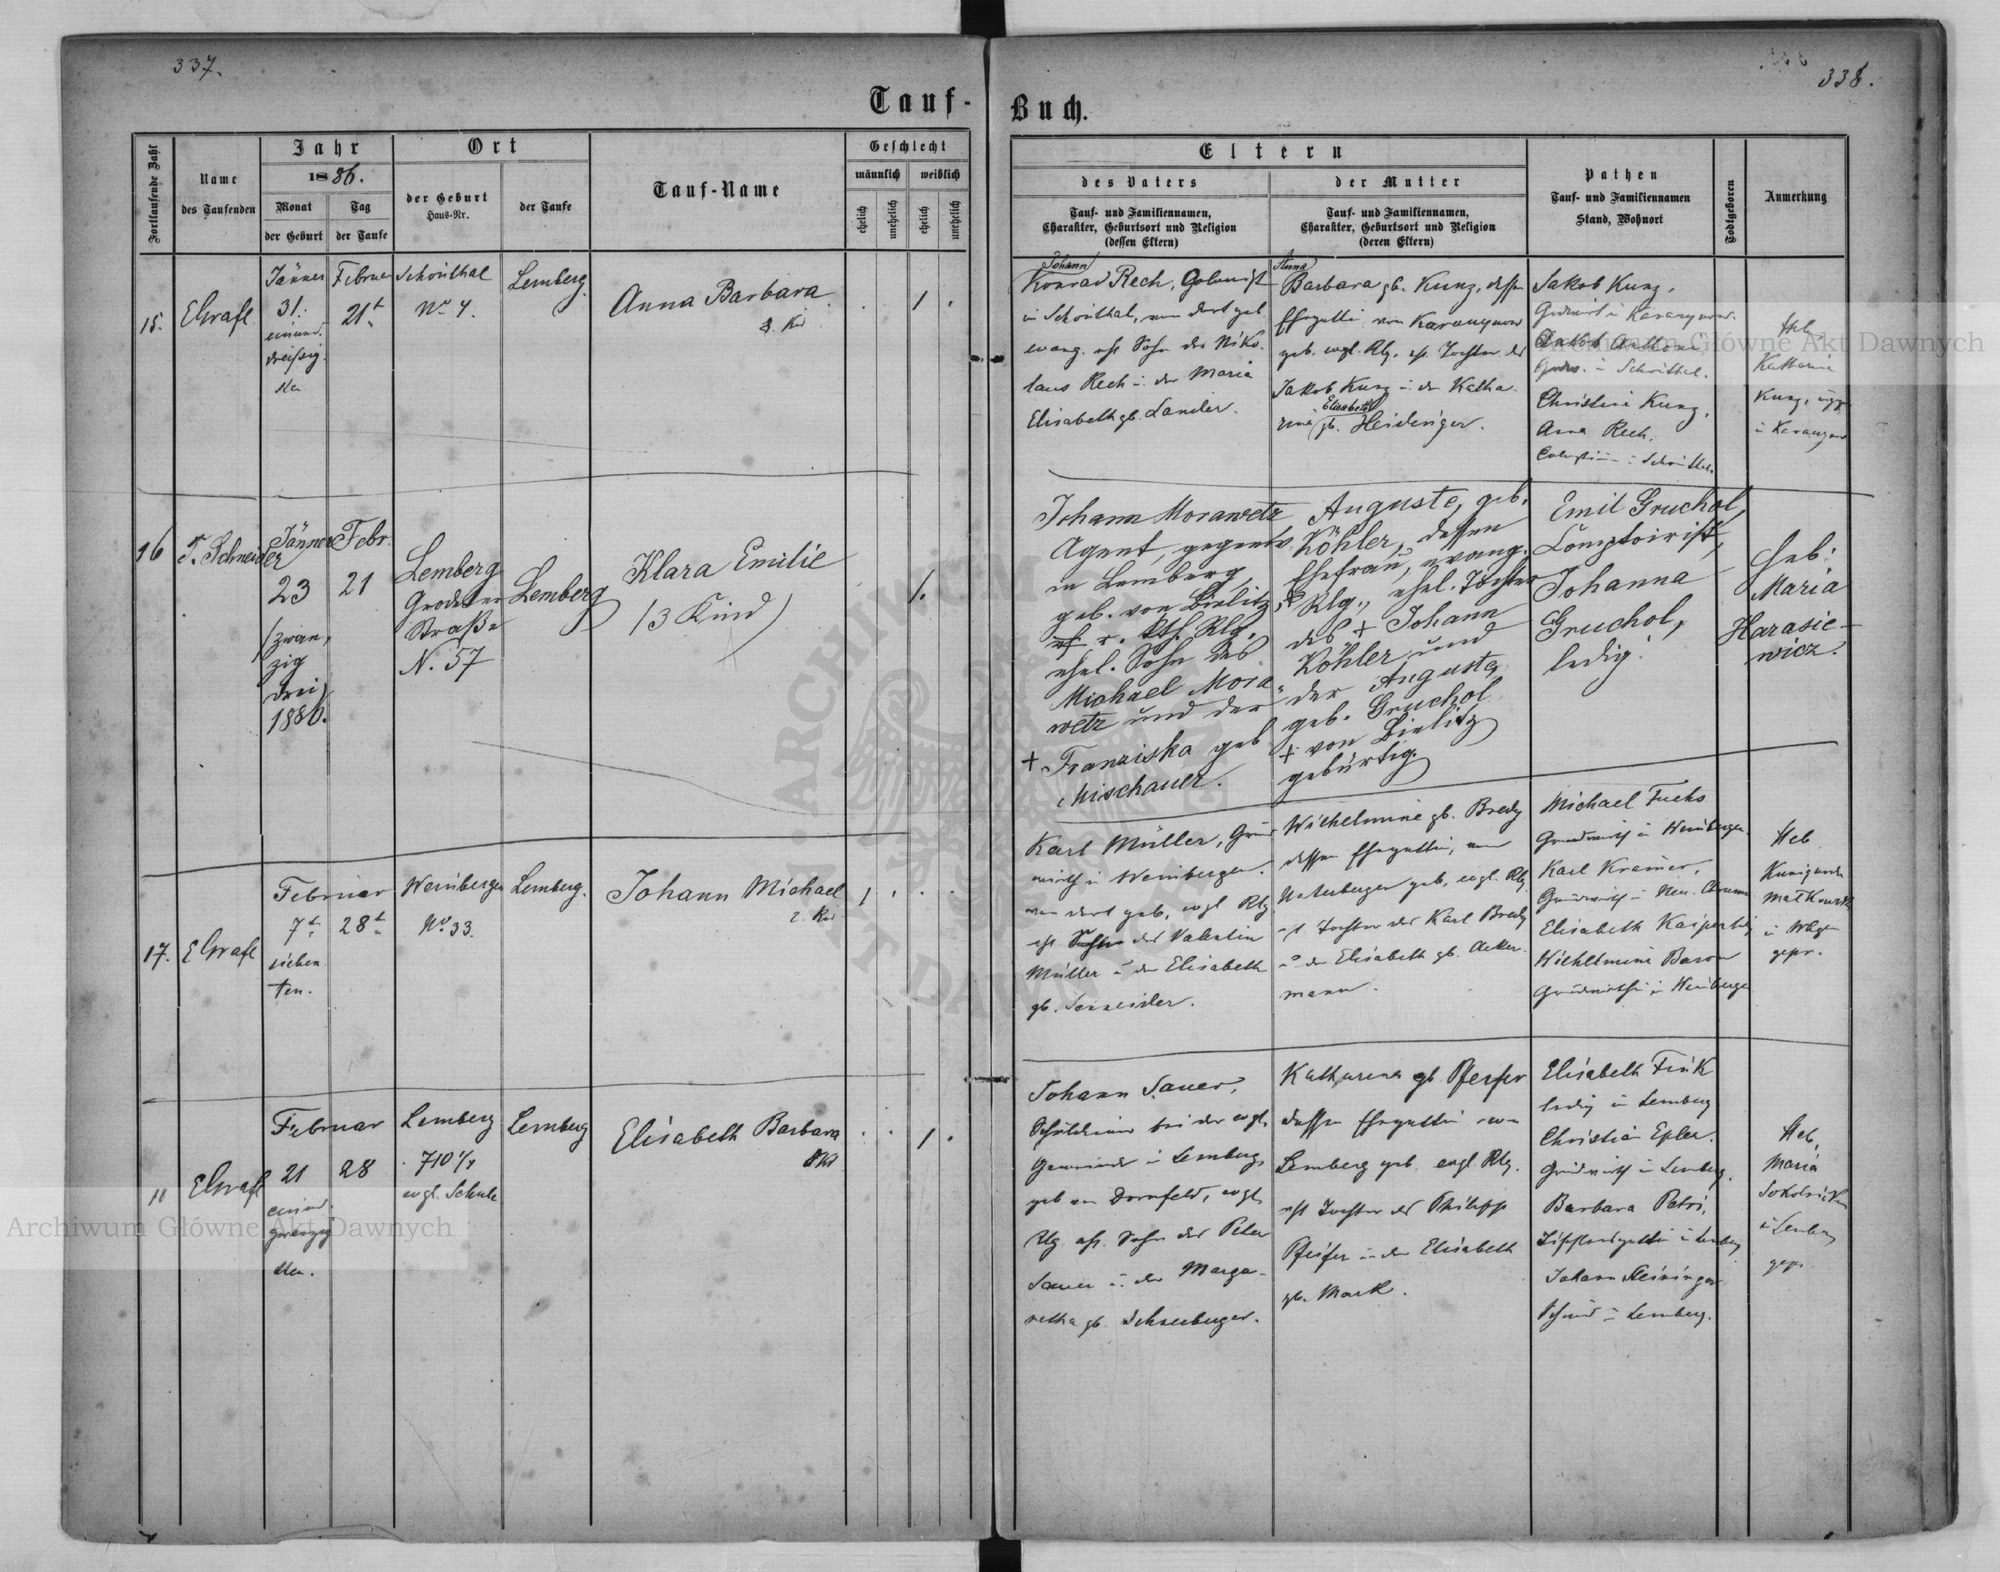 337.
338.
Tauf-Buch.
Fortlaufende Zahl
Name
des Taufenden
Jahr
1886.
Monat
der Geburt
Tag
der Taufe
Ort
der Geburt
Haus-Nr.
der Taufe
Tauf-Name
Geschlecht
männlich
weiblich
ehelich
unehelich
ehelich
unehelich
Eltern
des Vaters
Tauf- und Familiennamen,
Charakter, Geburtsort und Religion
(dessen Eltern)
der Mutter
Tauf- und Familiennamen,
Charakter, Geburtsort und Religion
(deren Eltern)
Pathen
Tauf- und Familiennamen
Stand, Wohnort
Todtgeboren
Anmerkung
15.
EGrafl
Jänner
31.
einund
dreißig
sten
Februar
21t
Schönthal
No 4.
Lemberg
Anna Barbara
Kid
1
Johann
Konrad Rech, Colonist
in Schönthal, von dort geb
evang. ehl Sohn des Niko
laus Rech u. der Maria
Elisabeth gb. Lander.
Anna
Barbara gb. Kunz, dessen
Ehegattin von
geb. evgl. Rlg. ehl. Tochter des
Jakob Kunz u. der Katha
rina Elisabeth gb. Heidinger.
Jakob Kunz,
Jakob Anthoni
in Schönthal.
Christine Kunz,
Anna Rech,
Heb
Katharine
Kunz,
16
T. Schneider
Jänner
23
(zwan,
zig
drei)
1886.
Febr.
21
Lemberg
Grodeker
Straße
N. 57
Lemberg
Klara Emilie
(3 Kind)
1.
Johann Morawetz
Agent, gegenw
in Lemberg,
geb. von Bielitz
r. kth. Rlg.
ehel. Sohn des
Michael Mora
wetz und der
+ Franziska geb
Mischauer.
Auguste, geb.
Köhler, dessen
Ehefrau, evang.
Rlg., ehel. Tochter
des + Johann
Köhler und
der Augusta
geb. Gruchol
+ von Bielitz
gebürtig
Emil Gruchol,
Comptoirist,
Johanna
Gruchol,
ledig.
Heb:
Maria
Harasie-
wicz.
17.
EGrafl
Februar
7t
sieben
ten.
28t
Weinbergen
No 33.
Lemberg.
Johann Michael
2. Kid
1
Karl Müller, Grund
wirth in Weinbergen.
von dort geb, evgl Rlg
ehl Sohn des Valentin
Müller u der Elisabeth
gb. Schneider.
Wilhelmine gb. Bredy
dessen Ehegattin, von
Unterbergen geb, evgl. Rlg
ehl Tochter des Karl Bredy
u der Elisabeth gb. Acker
mann.
Michael Fuchs
Grundwirth in Weinbergen.
Karl Kramer,
Elisabeth
Wilhelmine Baron
Heb
Kunigunde
gepr.
EGrafl
Februar
21
einund
zwanzig
sten.
28
Lemberg
710 1/4
evgl. Schule
Lemberg
Elisabeth Barbara
1
Johann Sauer,
Schuldiener bei der evgl.
Gemeinde in Lemberg,
geb von Dornfeld, evgl.
Rlg. ehl. Sohn des Peter
Sauer u. der Marga-
retha gb. Schneeberger.
Katharina gb Pfeifer
dessen Ehegattin von
Lemberg geb. evgl Rlg.
ehl Tochter des Philipp
Pfeifer u der Elisabeth
gb. Mark.
Elisabeth Fink
ledig in Lemberg
Christian Epler.
Grundwirth in Lemberg.
Barbara Petri,
Tischlersgattin in Lemberg
Johann
Schmied in Lemberg.
Heb,
Maria
in Lemberg
gepr.
Archiwum Główne Akt Dawnych
Archiwum Główne Akt Dawnych